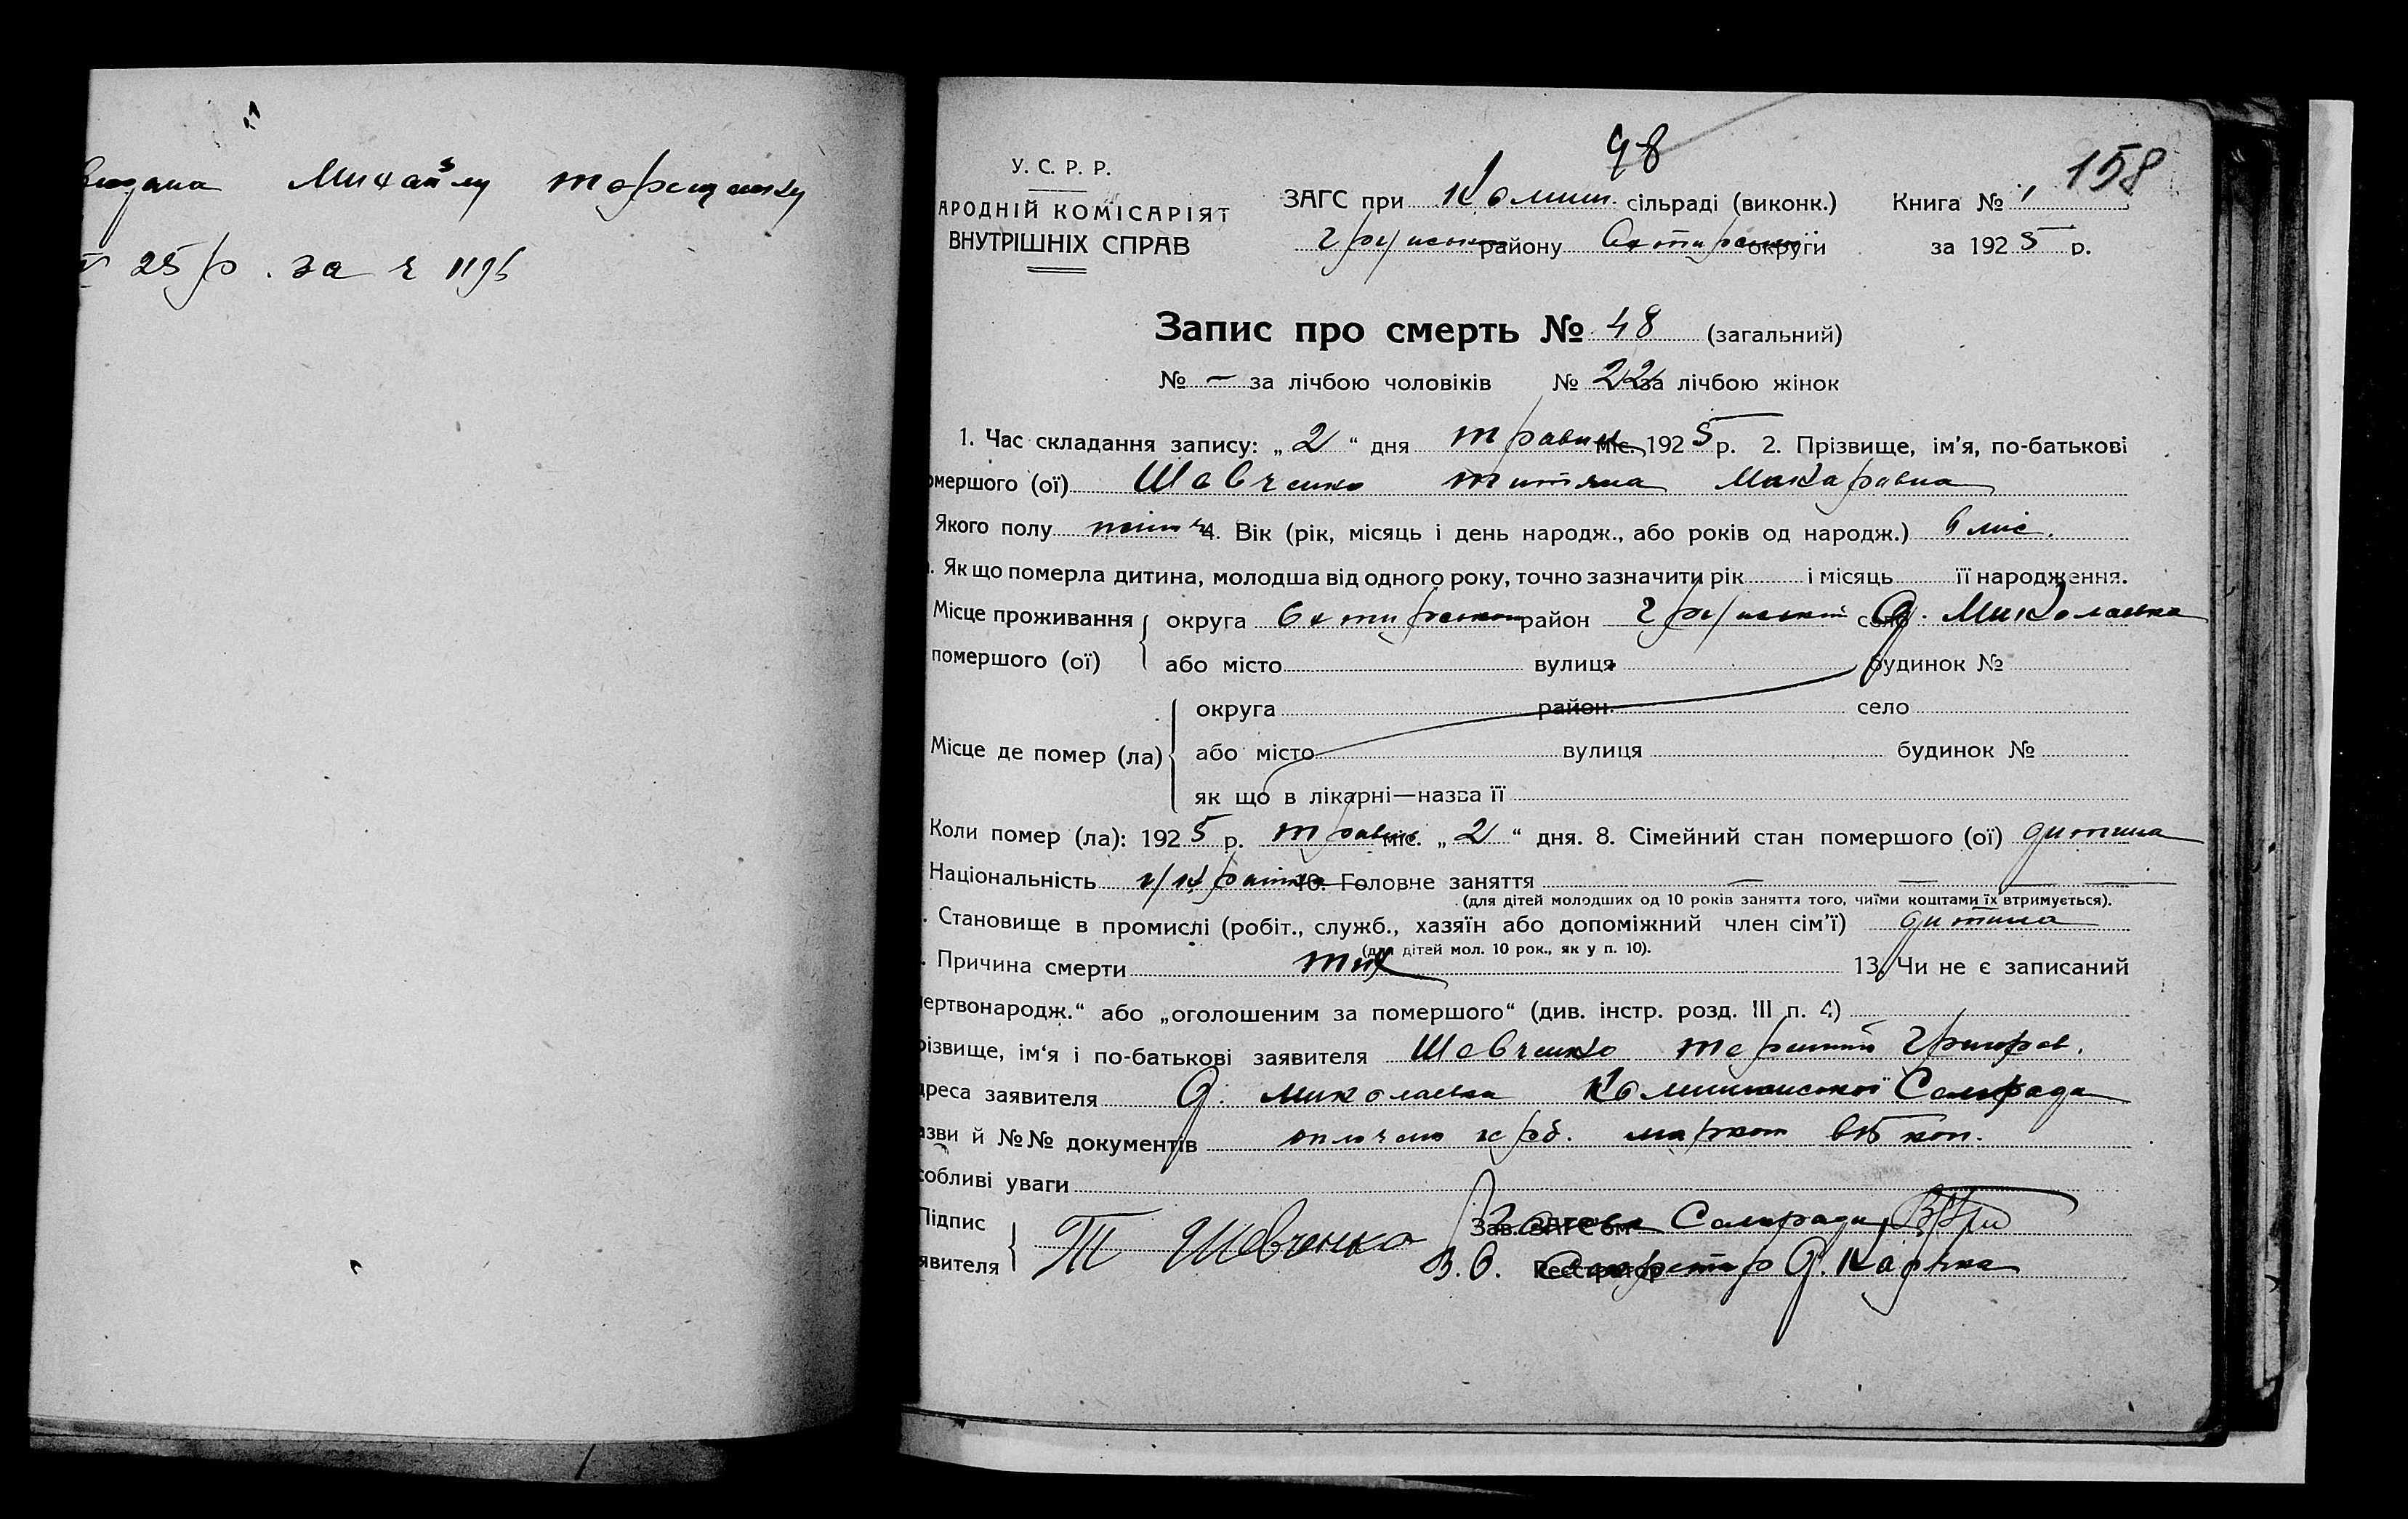 Михайлу
25 р. за ч 1196
98
158
У. С. Р. Р.
АРОДНІЙ КОМІСАРІЯТ
ВНУТРІШНІХ СПРАВ
ЗАГС при Комиш. сільраді (виконк.) Книга № 1
району округи за 1925 р.
Запис про смерть № 48 (загальний)
№ – за лічбою чоловіків № 22 за лічбою жінок
1. Час складання запису: „2“ дня травня міс. 1925 р. 2. Прізвище, ім’я, по-батькові
омершого (ої) Шевченко Титяна Макаровна
Якого полу 4. Вік (рік, місяць і день народж., або років од народж.) 6 міс.
. Як що померла дитина, молодша від одного року, точно зазначити рік і місяць її народження.
Місце проживання округа район село Д. Миколаевка
помершого (ої) або місто вулиця будинок №
округа район село
Місце де помер (ла) або місто вулиця будинок №
як що в лікарні—назва її
Коли помер (ла): 1925 р. травня міс. „2“ дня. 8. Сімейний стан помершого (ої) дитина
Національність 10. Головне заняття — — — —
(для дітей молодших од 10 років заняття того, чиїми коштами їх втримується).
. Становище в промислі (робіт., служб., хазяїн або допоміжний член сім’ї) дитина
(для дітей мол. 10 рок., як у п. 10).
. Причина смерти тиф 13. Чи не є записаний
ертвонародж.“ або „оголошеним за помершого“ (див. інстр. розд. III п. 4)
різвище, ім‘я і по-батькові заявителя Шевченко Григоров.
дреса заявителя Д. Миколаевка Комишанської Сельрада
азви й №№ документів оплочено герб. маркою в 15 коп.
собливі уваги
Підпис Т Шевченко Зав. ЗАГС‘ом Голова Сельради
явителя В. О. Реєстратор Секретар